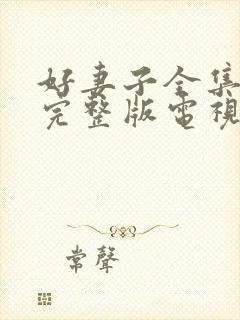 好妻子全集
完整版電視
常聲